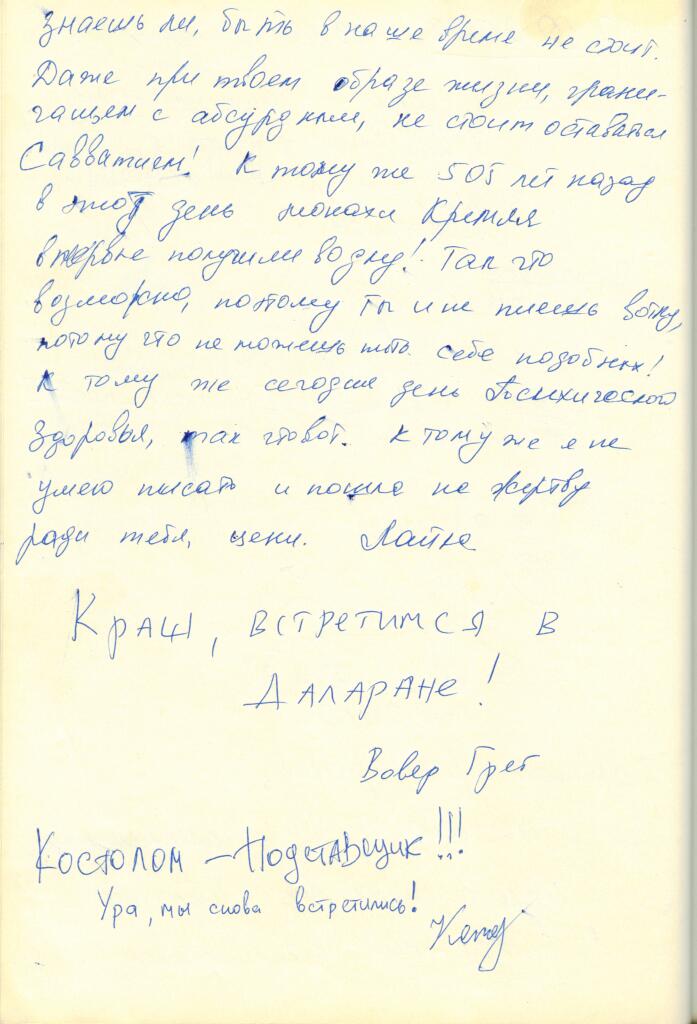 знаешь ли, быть в наше време не стоит.
Даже при твоем образе жизни, грани-
чащем с абсурдным, не стоит оставаться
Савватием! К тому же 505 лет назад
в этот день монахи Кремля
впервые получили водку! Так что
возможно, поэтому ты и не пьешь водку,
потому что не можешь пить себе подобных!
К тому же сегодня день Психического
Здоровья, так чтовот. К тому же я не
умею писать и пошла на жертву
ради тебя, цени. Лайка
Краш, встретимся в
Даларане!
Вовер Грег
Костолом – Подставщик!!!
Ура, мы снова встретились!